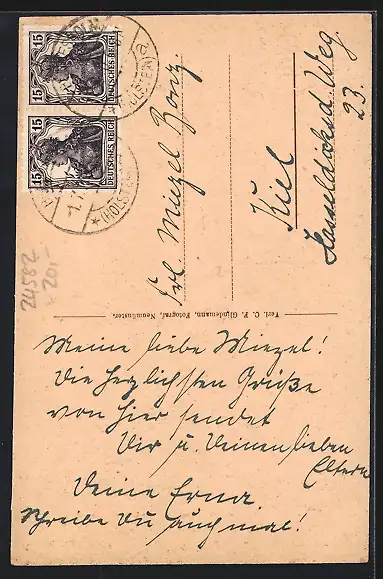 15
DEUTSCHES REICH
15
DEUTSCHES REICH
(HOLSTEIN) a
1.7.
* (HOLSTEIN)
24582
201-
Frl. Miezel Bonz.
Kiel
Hasseldieksd. Weg
23.
Verl. C. F. Glindemann, Fotograf, Neumünster.
Meine liebe Miezel!
Die herzlichsten Grüße
von hier sendet
Dir u. Deinen lieben
Eltern
Deine Erna
Schreibe Du auch mal!